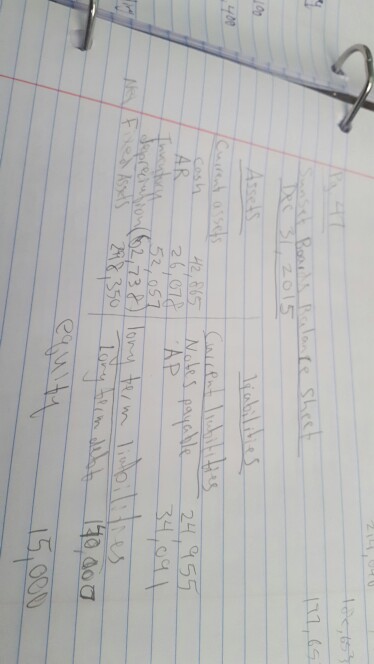 Pg 47
Sunset Boards Balance Sheet
Dec 31, 2015
Assets
Liabilities
Current assets
Current liabilities
Cash 42,865
Notes payable 24,955
AR 26,078
AP 34,091
Inventory 52,057
depreciation (62,738)
long term liabilities
Net Fixed Assets 248,350
long term debt 190,000
equity 15,000
214,040
177,65